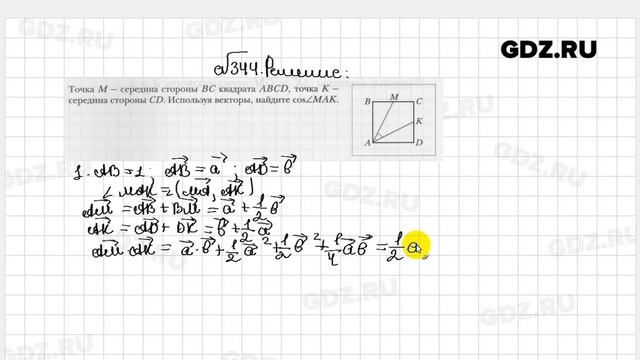 GDZ.RU
№344. Решение:
Точка M — середина стороны BC квадрата ABCD, точка K —
середина стороны CD. Используя векторы, найдите cos∠MAK.
B M C
K
A D
1. AB=1. AB⃗ = a⃗ ; AD⃗ = b⃗
∠ MAK = (MA⃗, AK⃗)
AM⃗ = AB⃗ + BM⃗ = a⃗ + 1/2 b⃗
AK⃗ = AD⃗ + DK⃗ = b⃗ + 1/2 a⃗
AM⃗ · AK⃗ = a⃗ · b⃗ + 1/2 a⃗² + 1/2 b⃗² + 1/4 a⃗ b⃗ = 1/2 a